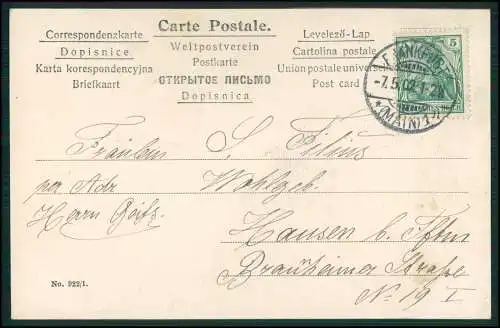 Carte Postale.
Correspondenzkarte
Dopisnice
Karta korespondencyjna
Briefkaart
Weltpostverein
Postkarte
ОТКРЫТОЕ ПИСЬМО
Dopisnica
Levelező-Lap
Cartolina postale
Union postale universelle
Post card
5
FRANKFURT
-7.5.02.1-2N
*(MAIN)1*
Fräulein S. Filius
per Adr Wohlgeb.
Herrn Goitz
Hausen b. Ffm
Brauheimer Straße
No 19 I
No. 922/1.